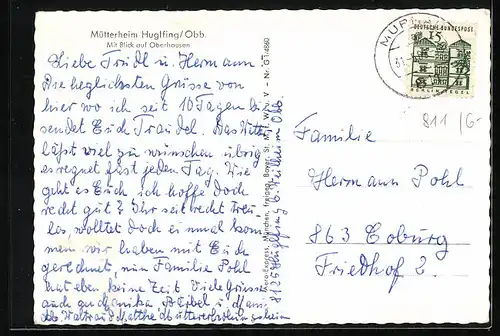 Mütterheim Huglfing/Obb.
Mit Blick auf Oberhausen
Liebe Trudl u. Hermann
Die herzlichsten Grüsse von
hier wo ich seit 10 Tagen bin
sendet Euch Traudel. Das Wetter
läßt viel zu wünschen übrig
es regnet fast jeden Tag. Wie
geht es Euch ich hoffe doch
recht gut? Ihr seit recht treu
los, wolltet doch einmal kom
men wir haben mit Euch
gerechnet, nun Familie Pohl
hat eben keine Zeit. Viele Grüsse
auch an Monika Bärbel u.
DEUTSCHE BUNDESPOST
15
BERLIN-TEGEL
811 /G-
Familie
Hermann Pohl
863 Coburg
Friedhof 2.